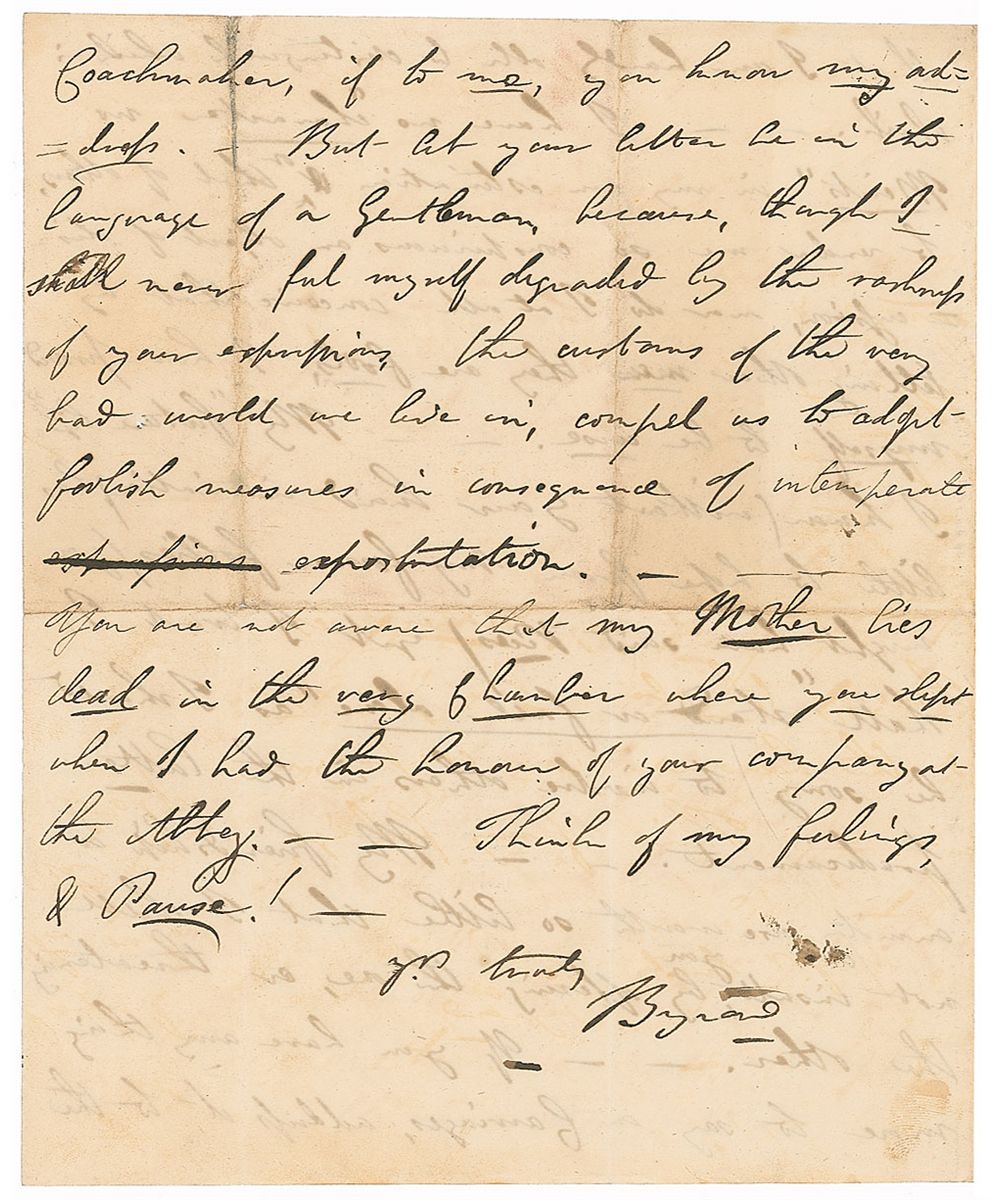 Coachmaker, if to me, you know my ad=
=dress. - But let your letter be in the
language of a Gentleman, because, though I
shall never feel myself degraded by the rashness
of your expressions, the customs of the very
bad world we live in, compel us to adopt
foolish measures in consequence of intemperate
expressions expostulation. — —
You are not aware that my Mother lies
dead in the very Chamber where you slept
when I had the honour of your company at
the Abbey. — — Think of my feelings,
& Pause! —
yrs truly
Byron